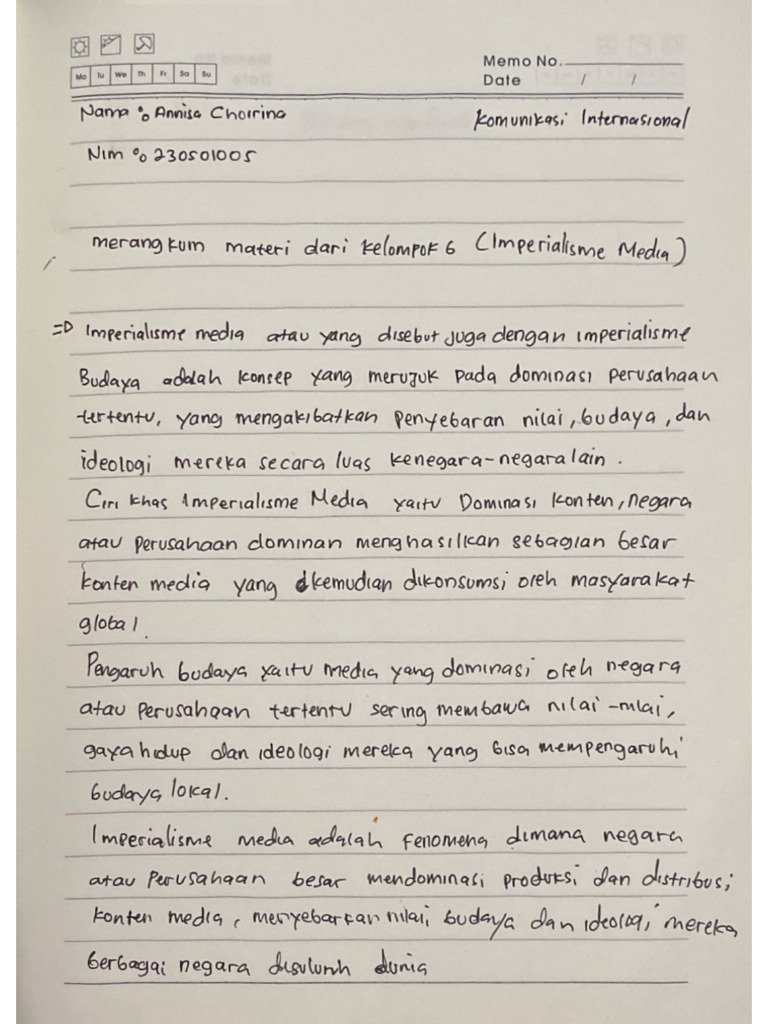 Memo No.
Mo Tu We Th Fr Sa Su
Date / /
Nama : Annisa Choirina Komunikasi Internasional
Nim : 230501005
merangkum materi dari kelompok 6 (Imperialisme Media)
=> Imperialisme media atau yang disebut juga dengan imperialisme
Budaya adalah konsep yang merujuk pada dominasi perusahaan
tertentu, yang mengakibatkan penyebaran nilai, budaya, dan
ideologi mereka secara luas kenegara-negara lain.
Ciri khas Imperialisme Media yaitu Dominasi konten, negara
atau perusahaan dominan menghasilkan sebagian besar
konten media yang kemudian dikonsumsi oleh masyarakat
global.
Pengaruh budaya yaitu media yang dominasi oleh negara
atau perusahaan tertentu sering membawa nilai-nilai,
gaya hidup dan ideologi mereka yang bisa mempengaruhi
budaya lokal.
Imperialisme media adalah fenomena dimana negara
atau perusahaan besar mendominasi produksi dan distribusi
konten media, menyebarkan nilai, budaya dan ideologi mereka
berbagai negara diseluruh dunia